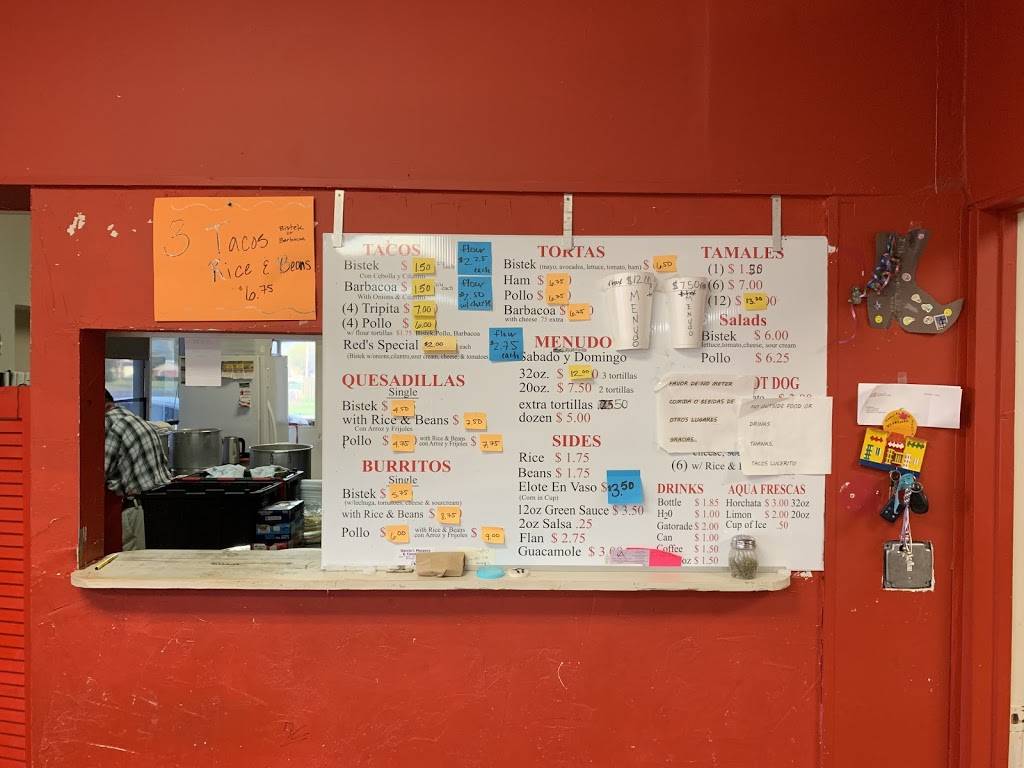 3 Tacos Bistek or Barbacoa
Rice & Beans
$6.75
TACOS
Bistek $ 1.50 each
Con Cebolla y Cilantro
Barbacoa $ 1.50 each
With Onions & Cilantro
(4) Tripita $ 7.00
(4) Pollo $ 6.00
w/ flour tortillas $1.75 Bistek, Pollo, Barbacoa
Red's Special $2.00 each
(Bistek w/onions, cilantro, sour cream, cheese, & tomatoes
flour
$2.25
each
flour
$2.50
w/cheese
flour
$2.75
each
QUESADILLAS
Single
Bistek $ 4.50
with Rice & Beans $ 7.50
Con Arroz y Frijoles
Pollo $ 4.75 with Rice & Beans $ 7.75
con Arroz y Frijoles
BURRITOS
Single
Bistek $ 5.75
(w/lechuga, tomatoes, cheese & sourcream)
with Rice & Beans $ 8.75
Pollo $ 6.00 with Rice & Beans $ 9.00
con Arroz y Frijoles
TORTAS
Bistek (mayo, avocados, lettuce, tomato, ham) $ 6.50
Ham $ 6.75
Pollo $ 6.75
Barbacoa $ 6.75
with cheese .75 extra
MENUDO
Sabado y Domingo
32oz. $ 12.00 3 tortillas
20oz. $ 7.50 2 tortillas
extra tortillas .50
dozen $ 5.00
SIDES
Rice $ 1.75
Beans $ 1.75
Elote En Vaso $3.50
(Corn in Cup)
12oz Green Sauce $ 3.50
2oz Salsa .25
Flan $ 2.75
Guacamole $ 3.00
$12.00
MENUDO
$7.50
TAMALES
(1) $ 1.50
(6) $ 7.00
(12) $ 13.00
Salads
Bistek $ 6.00
lettuce,tomato,cheese, sour cream
Pollo $ 6.25
OT DOG
FAVOR DE NO METER
COMIDA O BEBIDAS DE
OTROS LUGARES
GRACIAS.
NO OUTSIDE FOOD OR
DRINKS
THANKS,
TACOS LUCERITO
(6) w/ Rice &
DRINKS
Bottle $ 1.85
H20 $ 1.00
Gatorade $ 2.00
Can $ 1.00
Coffee $ 1.50
oz $ 1.50
AQUA FRESCAS
Horchata $ 3.00 32oz
Limon $ 2.00 20oz
Cup of Ice .50